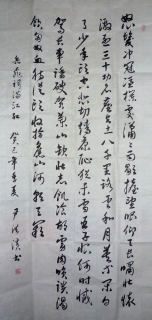 怒髮衝冠憑欄處瀟瀟雨歇擡望眼仰天長嘯壯懷
激烈三十功名塵與土八千里路雲和月莫等閑白
了少年頭空悲切靖康恥猶未雪臣子恨何時滅
駕長車踏破賀蘭山缺壯志飢餐胡虜肉笑談渴
飲匈奴血待從頭收拾舊山河朝天闕
岳飛詞滿江紅 癸巳年季夏 書